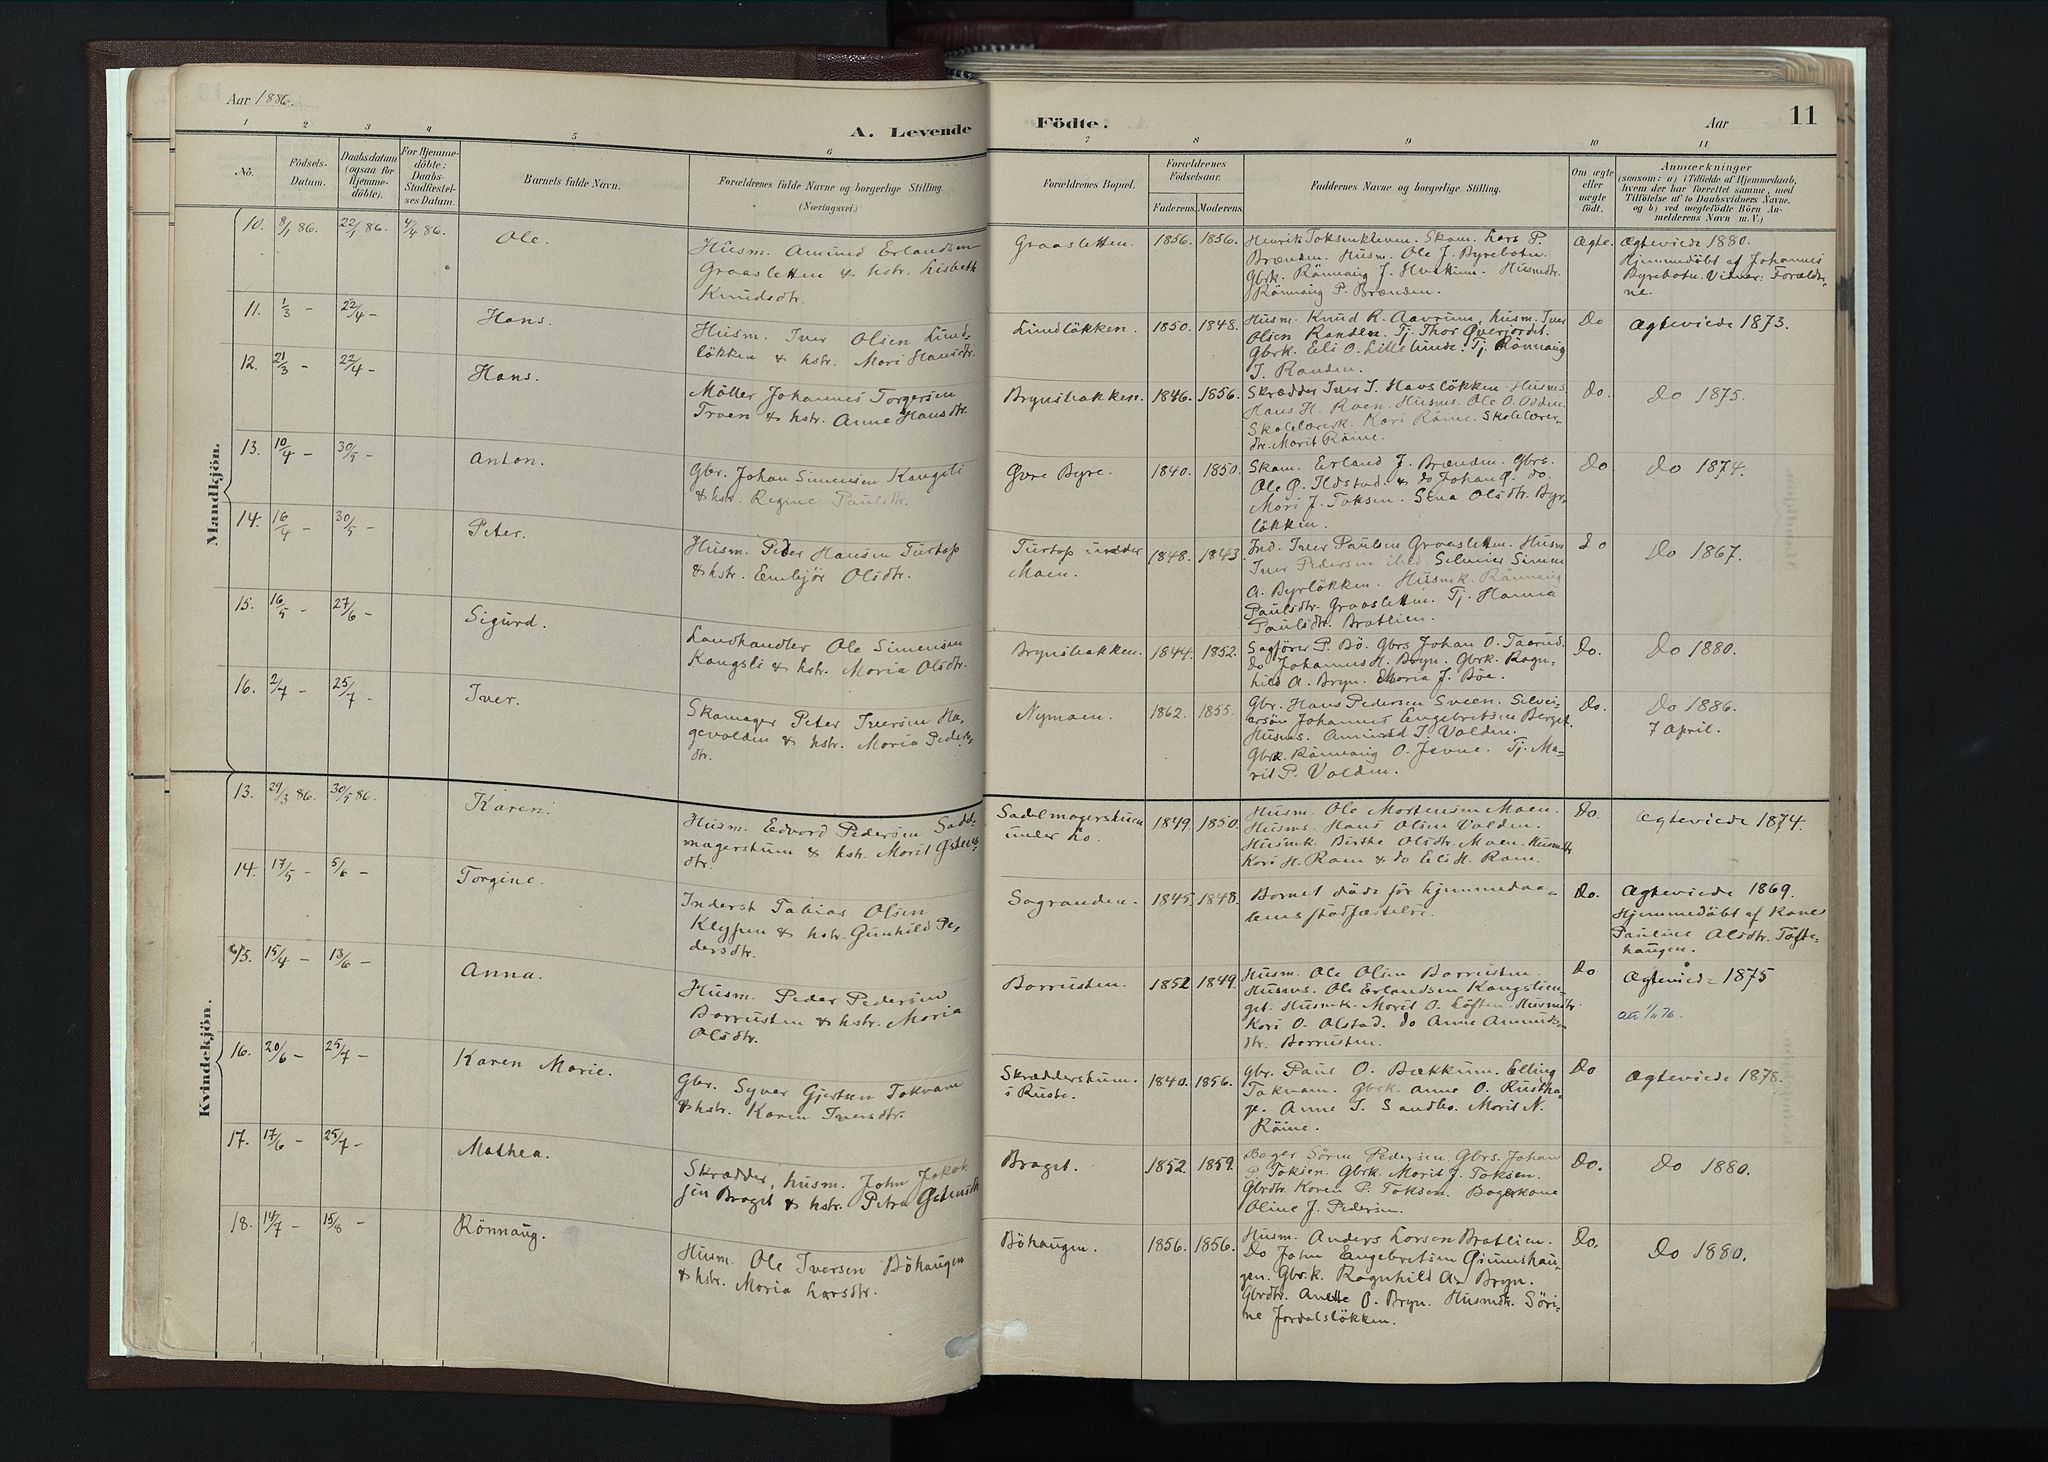 Aar 1886.
A. Levende Födte.
Aar
11
1 2 3 4 5 6 7 8 9 10 11
No.
Födsels-
Datum.
Daabsdatum
(ogsaa for
Hjemme-
döbte).
For Hjemme-
döbte:
Daabs-
Stadfæstel-
ses Datum.
Barnets fulde Navn.
Forældrenes fulde Navne og borgerlige Stilling.
(Næringsvei.)
Forældrenes Bopæl.
Forældrenes
Födselsaar.
Faderens. Moderens.
Faddernes Navne og borgerlige Stilling.
Om ægte
eller
uægte
födt.
Anmærkninger
(saasom: a) i Tilfælde af Hjemmedaab,
hvem der har forrettet samme, med
Tilföielse af to Daabsvidners Navne,
og b) ved uægtefödte Börn An-
melderens Navn m. V.)
Mandkjön.
10. 8/1 86. 22/1 86. 4/4 86. Ole.
Husm. Amund Erlandsen
Graasletten & hstr. Lisbeth
Knudsdtr.
Graasletten. 1856. 1856.
Henrik Toksenkleven. Skom. Lars P.
Brænden. Husm. Ole J. Byrebotn.
Gbrk. Rönnaug J. Husmdtr.
Rönnaug P. Brænden.
Ægte.
Ægteviede 1880.
Hjemmedöbt af Johannes
Byrebotn. Vidner: Forældre-
ne.
11. 1/3 – 22/4 – Hans.
Husm. Iver Olsen Lund-
lökken & hstr. Mari Hansdtr.
Lundlökken. 1850. 1848.
Husm. Knud R. Aavrum, husm. Iver
Olsen Randen. Tj. Thor Överjordet.
Gbrk. Eli O. Lillelunde. Tj. Rönnaug
I. Randen.
Do
Ægteviede 1873.
12. 21/3 – 22/4 – Hans.
Möller Johannes Torgersen
Troen & hstr. Anne Hansdtr.
Brynsbakken. 1846. 1856.
Skrædder Iver I. Havslökken. Husms.
Hans H. Roen. Husms. Ole O. Odden.
Skolelærerk. Kari Röine. Skolelærer-
dtr. Marit Röine.
Do.
Do 1875.
13. 10/4 – 30/5 – Anton.
Gbr. Johan Simensen Kongsli
& hstr. Regine Paulsdtr.
Övre Byre. 1840. 1850.
Skom. Erland J. Brænden. Gbrs.
Ole Ø. Ildstad. & do Johan Ø. do.
Mari J. Toksen. Sina Olsdtr. Byr-
lökken.
Do
Do 1874.
14. 16/4 – 30/5 – Peter.
Husm. Peder Hansen Turtop
& hstr. Embjör Olsdtr.
Turtop under
Moen. 1848. 1843.
Ind. Iver Paulsen Graasletten. Husm
Iver Pedersen ibid. Selveier Simen
A. Byrlökken. Husmk. Rönnaug
Paulsdtr. Graasletten. Tj. Hanna
Paulsdtr. Bratlien.
Do
Do 1867.
15. 16/5 – 27/6 – Sigurd.
Landhandler Ole Simensen
Kongsli & hstr. Maria Olsdtr.
Brynsbakken. 1844. 1852.
Sagförer P. Bö. Gbrs Johan O. Taarud.
do Johannes H. Bryn. Gbrk. Ragn-
hild A. Bryn. Maria J. Böe.
Do.
Do 1880.
16. 2/7 – 25/7 – Iver.
Skomager Peter Iversen Ha-
gevolden & hstr. Maria Peders-
dtr.
Nymoen. 1862. 1855.
Gbr. Hans Pedersen Sveen. Selvei-
ersön Johannes Engebretsen Berget.
Husms. Amund I. Volden.
Gbrk. Rönnaug O. Jevne. Tj. Ma-
rit P. Volden.
Do.
Do 1886.
7 April.
Kvindekjön.
13. 29/3 86. 30/5 86. Karen.
Husm. Edvard Pedersen Sadel-
magerstuen & hstr. Marit Östens-
dtr.
Sadelmagerstuen
under Lo. 1849. 1850.
Husm. Ole Mortensen Moen.
Husms. Hans Olsen Volden.
Husmk. Birthe Olsdtr. Moen. Husmdtr
Kari H. Ram & do Eli H. Ram.
Do.
Ægteviede 1874.
14. 17/5 – 5/6 – Torgine.
Inderst Tobias Olsen
Klypen & hstr. Gunhild Pe-
dersdtr.
Sagranden. 1845. 1848.
Barnet döde för hjemmedaa-
bens stadfæstelse.
Do.
Ægteviede 1869.
Hjemmedöbt af Kones
Pauline Olsdtr. Töfte-
haugen.
15. 15/4 – 13/6 – Anna.
Husm. Peder Pedersen
Borrusten & hstr. Maria
Olsdtr.
Borrusten. 1852 1849.
Husm. Ole Olsen Borrusten.
Husms. Ole Erlandsen Kongslien-
get. Husmk. Marit O. Löften. Husmdtr
Kari O. Olstad. do Anne Amunds-
dtr. Borrusten.
Do
Ægteviede 1875
16. 20/6 – 25/7 – Karen Marie.
Gbr. Syver Gjertsen Tokvam
& hstr. Karen Iversdtr.
Skrædderstuen.
i Ruste. 1840. 1856.
Gbr. Paul O. Bækkum. Elling
Tokvam. Gbrk. Anne O. Rustha-
ge. Anne I. Sandbo. Marit N.
Röine.
Do
Ægteviede 1878.
17. 17/6 – 25/7 – Mathea.
Skrædder, husm. John Jakob-
sen Braget & hstr. Petra Östensdtr
Braget. 1852. 1859.
Bager Sören Pedersen. Gbrs. Johan
P. Toksen. Gbrk. Marit J. Toksen.
Gbrdtr. Karen P. Toksen. Bagerkone
Oline J. Pedersen.
Do.
Do 1880.
18. 14/7 – 15/8 – Rönnaug.
Husm. Ole Iversen Böhaugen
& hstr. Maria Larsdtr.
Böhaugen. 1856. 1856.
Husm. Anders Larsen Bratlien.
Do John Engebretsen Grimshau-
gen. Gbrk. Ragnhild A. Bryn.
Gbrdtr. Anette O. Bryn. Husmdtr. Söri-
ne Jordalslökken.
Do.
Do 1880.